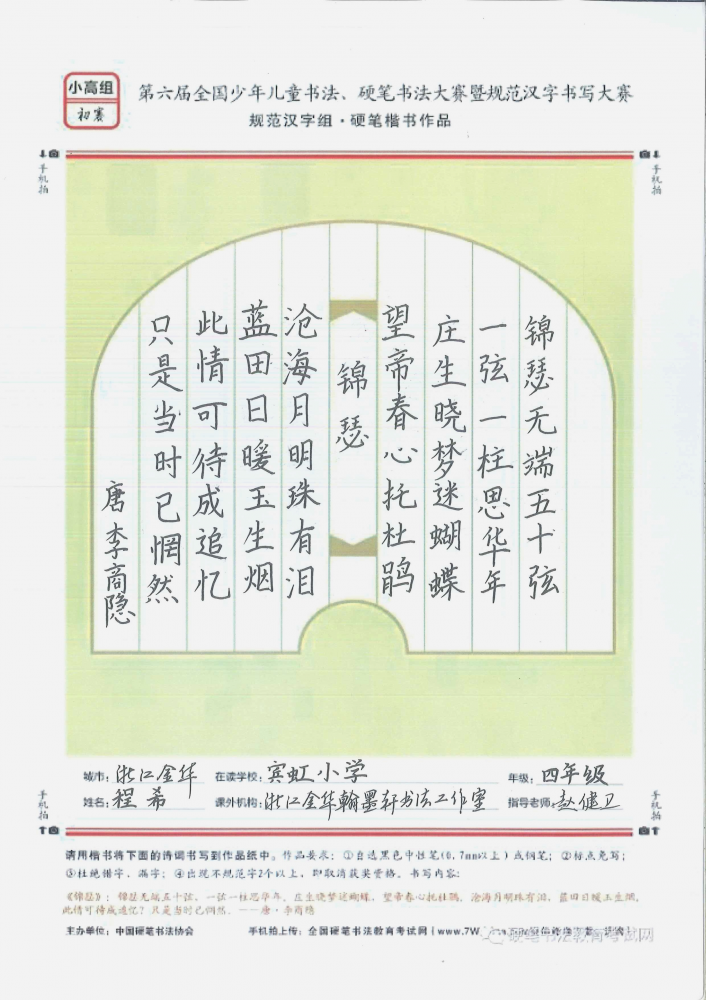 小高组
初赛
第六届全国少年儿童书法、硬笔书法大赛暨规范汉字书写大赛
规范汉字组·硬笔楷书作品
手机拍
手机拍
锦瑟无端五十弦
一弦一柱思华年
庄生晓梦迷蝴蝶
望帝春心托杜鹃
锦瑟
沧海月明珠有泪
蓝田日暖玉生烟
此情可待成追忆
只是当时已惘然
唐李商隐
城市：浙江金华 在读学校：宾虹小学 年级：四年级
姓名：程希 课外机构：浙江金华翰墨轩书法工作室 指导老师：赵健卫
手机拍
手机拍
请用楷书将下面的诗词书写到作品纸中。作品要求：①自选黑色中性笔(0.7mm以上)或钢笔；②标点免写；
③杜绝错字、漏字；④出现不规范字2个以上，即取消获奖资格。书写内容：
《锦瑟》：锦瑟无端五十弦，一弦一柱思华年。庄生晓梦迷蝴蝶，望帝春心托杜鹃。沧海月明珠有泪，蓝田日暖玉生烟。
此情可待成追忆？只是当时已惘然。——唐·李商隐
主办单位：中国硬笔书法协会 手机拍上传：全国硬笔书法教育考试网 | www.7W
硬笔书法教育考试网